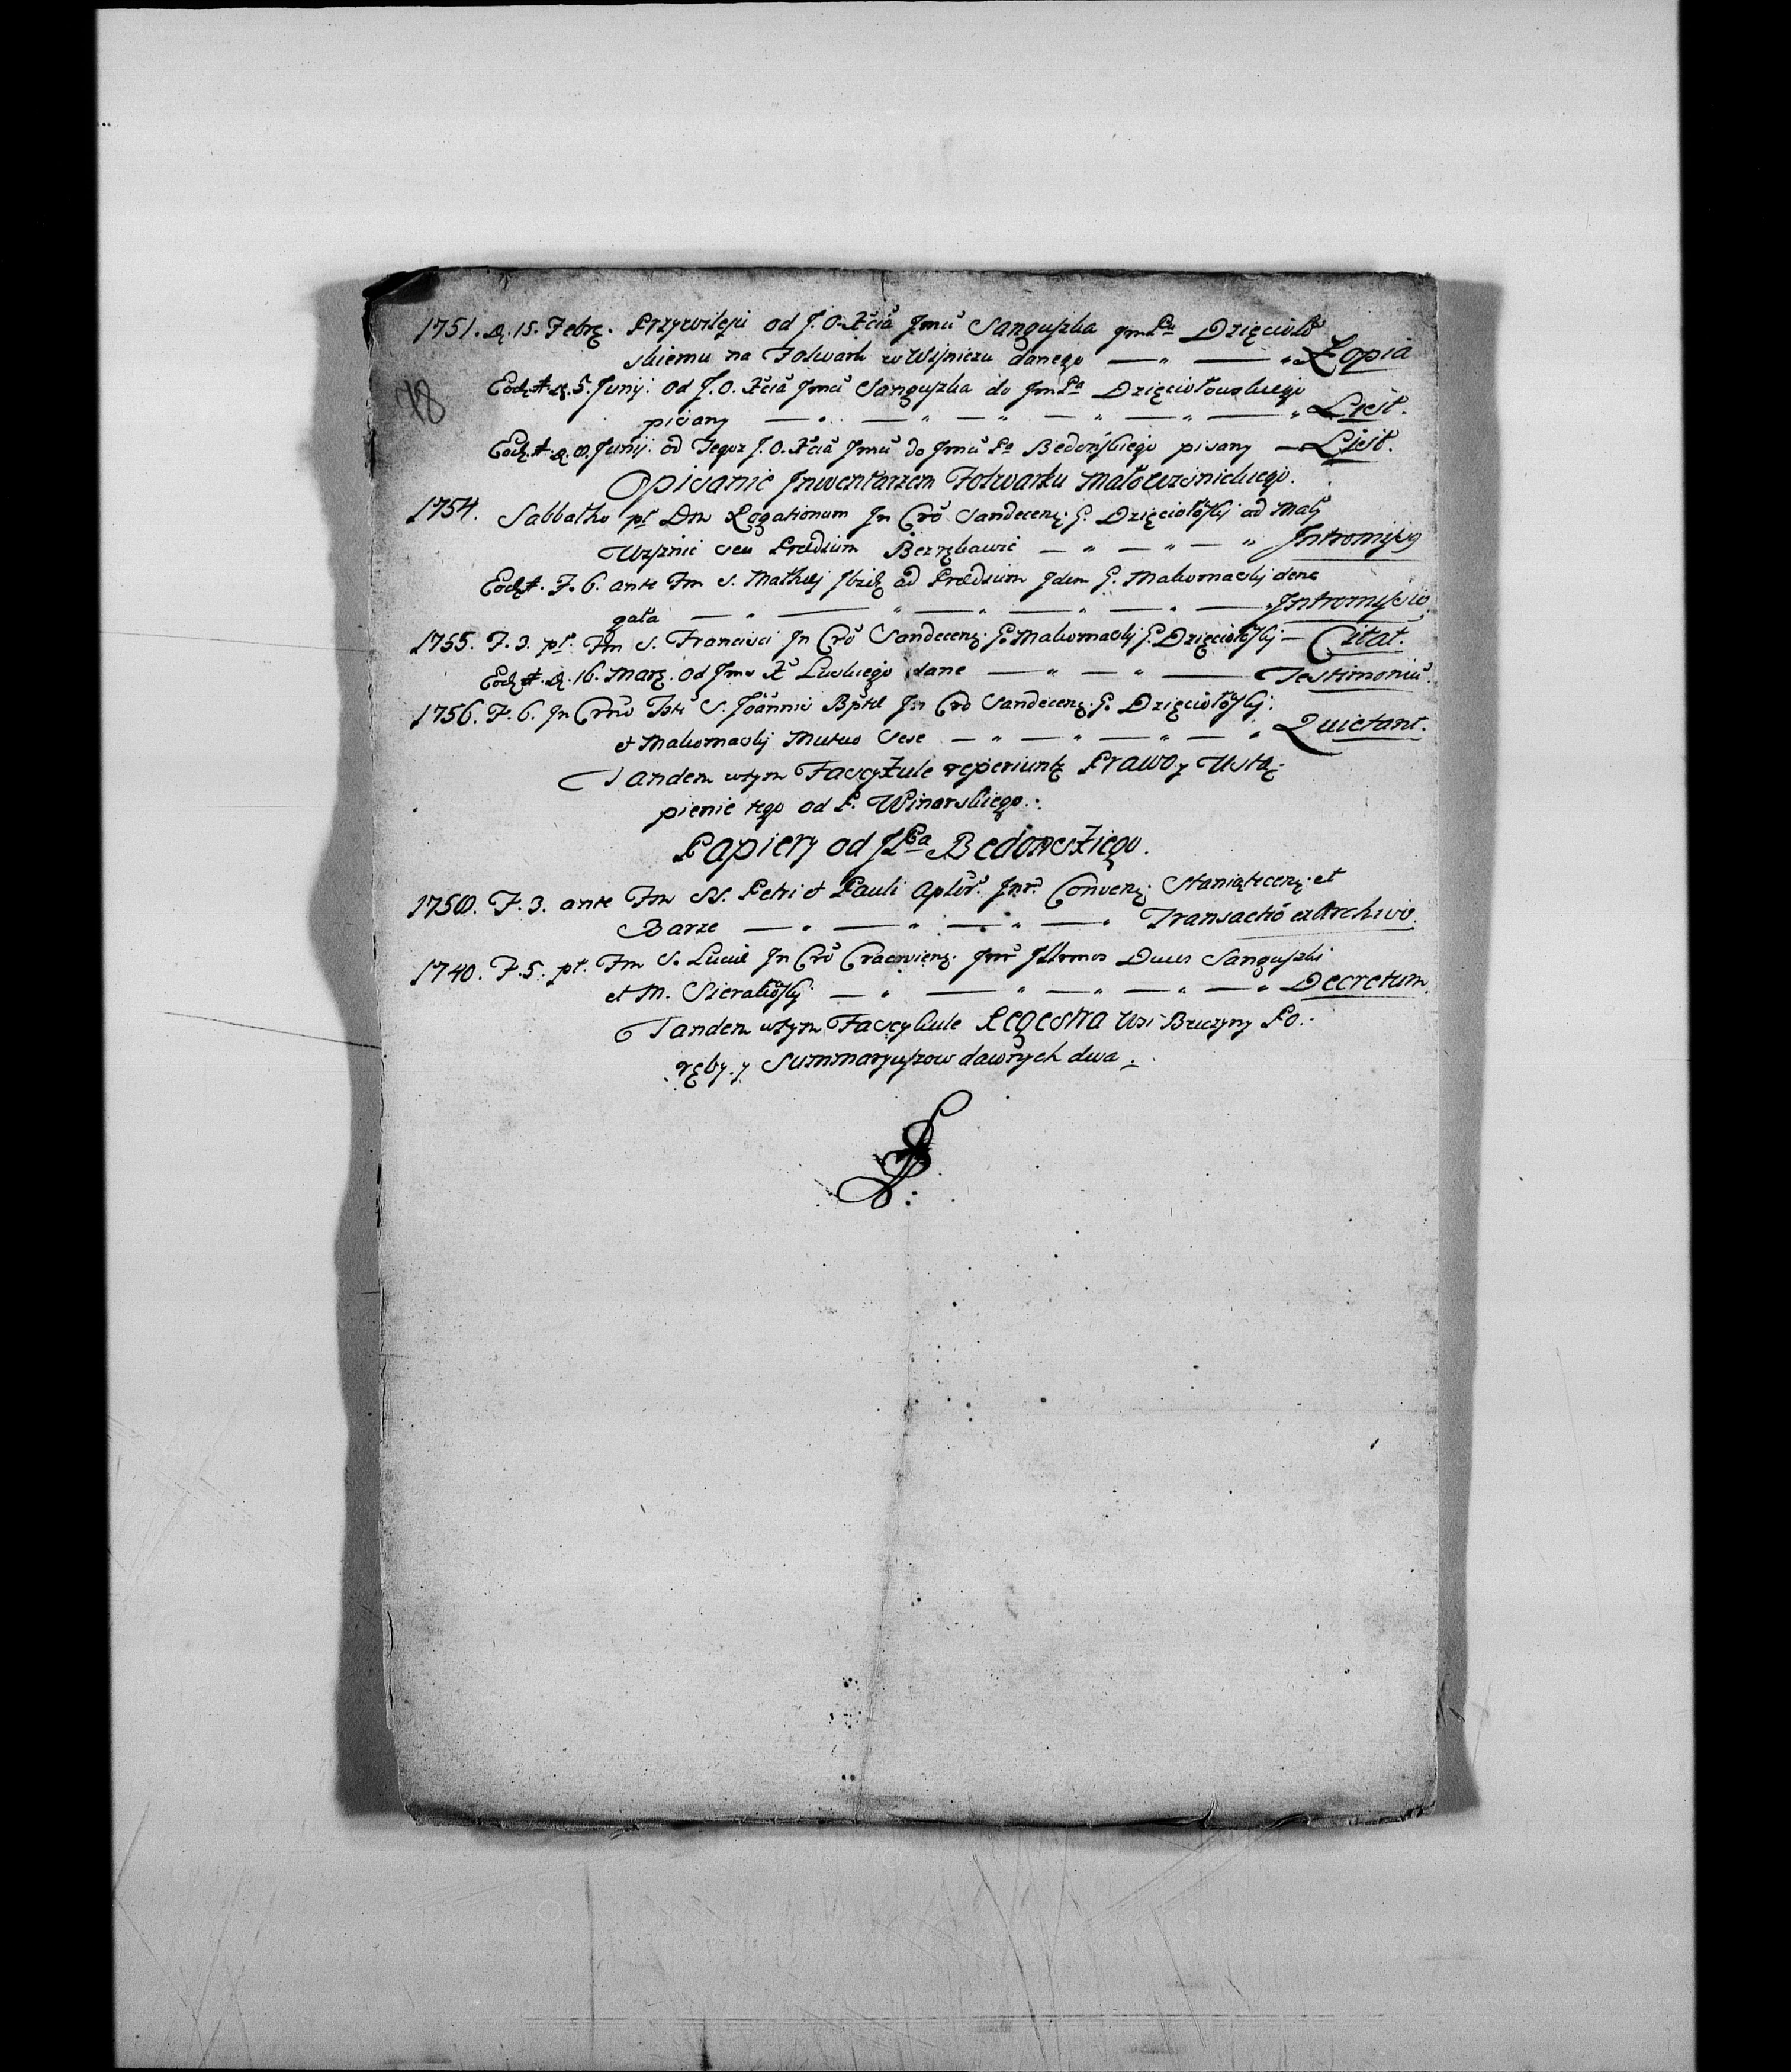 1751. D. 15. Febr. Przywileju od J. O. Xcia Jmci Sanguszka JmPu Dzięcioło
skiemu na Folwark w Wiśniczu danego — „ — „ Kopia
78
Eod. A. D. 5. Junij: od J. O. Xcia Jmci Sanguszka do JmPa Dzięciołowskiego
pisany — „ — „ — „ — „ — „ List.
Eod. A. D. 8. Junij: od Tegoz J. O. Xcia Jmci do Jmci Pa Bedońskiego pisany — List.
Opisanie Jnwentarzem Folwarku Małowiśnickiego.
1754. Sabbatho pt Dm Rogationum Jn Crō Sandecen: G. Dzięciołoskij ad Mał
Wiśnic seu Prædium Bezrębawic — „ — „ — „ Jntromissio
Eod. A. F. 6. ante Fm S. Mathæj Ibid. ad Prædium Jdem G. Makomaskij dene
gata — „ — „ — „ — „ Jntromissio.
1755. F. 3. pt. Fm S. Francisci Jn Crō Sandecen: G. Makomaskij G. Dzięciołoskij — Citat.
Eod. A. D. 16. Mar. od Jmc X Luskiego dane — „ — „ — Testimoniū.
1756. F. 6. Jn Crnō Fsti S. Joannis Bptæ Jn Crō Sandecen: G. Dzięciołoskij:
et Makomaskij Mutuo Sese — „ — „ — „ — „ Quietant.
Tandem wtym Fascykule reperiunt Prawo y Ustą-
pienie tego od P. Winarskiego.
Papiery od JPa Bedonskiego.
1758. F. 3. ante Fm SS. Petri et Pauli Aplor. Jnr. Conven: Staniątecen: et
Barze — „ — „ — „ — „ Transactio ex Archivo.
1740. F. 5. pt. Fm S. Luciæ Jn Crō Cracovien: Jnr Jllrmos Duces Sanguszki
et M. Sierakoskij — „ — „ — „ — „ — „ Decretum.
Tandem wtym Fascykule Regestra Wsi Brzezny Po-
ręby y Summaryuszow dawnych dwa.